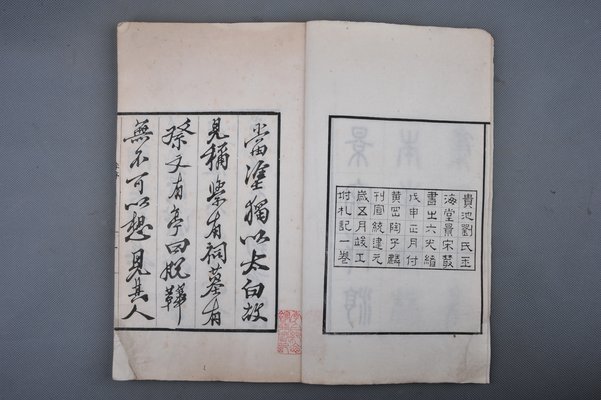 貴池劉氏玉
海堂景宋叢
書之六光緒
戊申正月付
黃岡陶子麟
刊宣統建元
歲五月竣工
坿札記一卷
當塗獨以太白故
見稱有祠墓有
祭文有亭曰脫鞾
無不可以想見其人